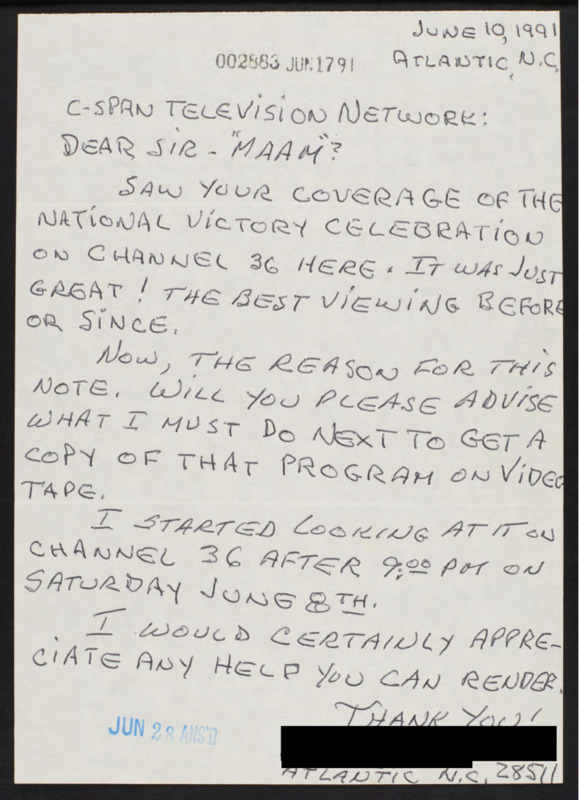 JUNE 10, 1991
002883 JUN 17 91
ATLANTIC, N.C.
C-SPAN TELEVISION NETWORK:
DEAR SIR - "MAAM"?
SAW YOUR COVERAGE OF THE
NATIONAL VICTORY CELEBRATION
ON CHANNEL 36 HERE. IT WAS JUST
GREAT! THE BEST VIEWING BEFORE
OR SINCE.
NOW, THE REASON FOR THIS
NOTE. WILL YOU PLEASE ADVISE
WHAT I MUST DO NEXT TO GET A
COPY OF THAT PROGRAM ON VIDEO
TAPE.
I STARTED LOOKING AT IT ON
CHANNEL 36 AFTER 9:00 PM ON
SATURDAY JUNE 8TH.
I WOULD CERTAINLY APPRE-
CIATE ANY HELP YOU CAN RENDER.
THANK YOU!
JUN 28 ANS'D
ATLANTIC N.C. 28511